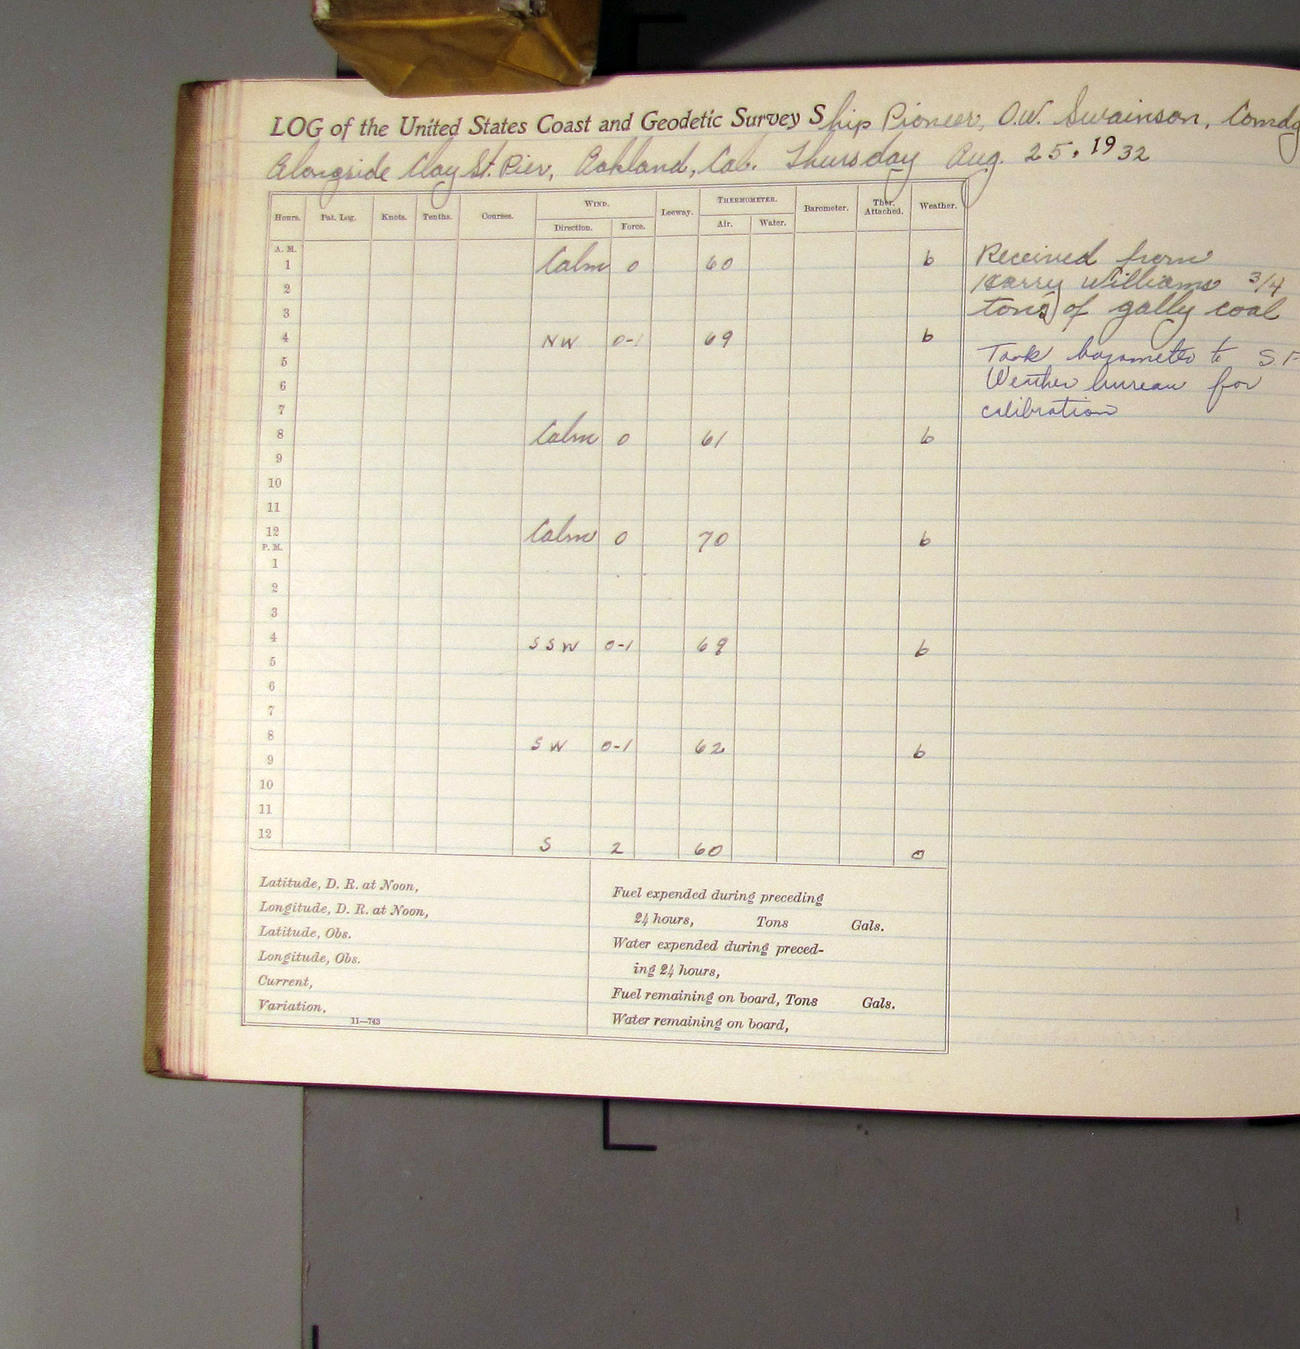 LOG of the United States Coast and Geodetic Survey Ship Pioneer, O.W. Swainson, Comdg
Alongside Clay St. Pier, Oakland, Cal. Thursday Aug. 25, 1932
Hours. Pat. Log. Knots. Tenths. Courses. WIND. Leeway. THERMOMETER. Barometer. Ther. Attached. Weather.
Direction. Force. Air. Water.
A. M.
1 Calm 0 60 b
2
3
4 NW 0-1 69 b
5
6
7
8 Calm 0 61 b
9
10
11
12 Calm 0 70 b
P. M.
1
2
3
4 SSW 0-1 69 b
5
6
7
8 SW 0-1 62 b
9
10
11
12 S 2 60 o
Received from
Harry Williams 3/4
tons of gally coal
Took barometer to S.F
Weather bureau for
calibration
Latitude, D. R. at Noon,
Longitude, D. R. at Noon,
Latitude, Obs.
Longitude, Obs.
Current,
Variation,
11—743
Fuel expended during preceding
24 hours, Tons Gals.
Water expended during preced-
ing 24 hours,
Fuel remaining on board, Tons Gals.
Water remaining on board,